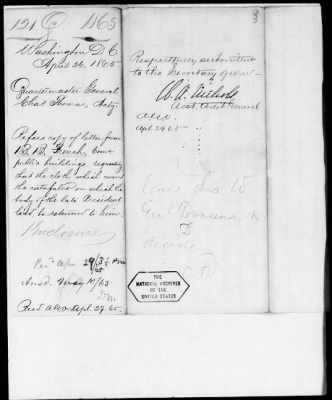 121 Q. 1865
Washington D.C.
April 26, 1865.
Quartermaster General
Chas Thomas, Actg.
Refers copy of letter from
B. B. French, Com.
public buildings, requesting
that the cloth which covered
the catafalco on which the
body of the late President
laid be returned to him.
1 Enclosure
Rec'd A.G.O. Apl. 27. 65.
Respectfully submitted
to the Secretary of War
W. A. Nichols
Asst. Adjt General
A.G.O.
Apl 29 65
Gen'l Townsend
decide
THE
NATIONAL ARCHIVES
OF THE
UNITED STATES